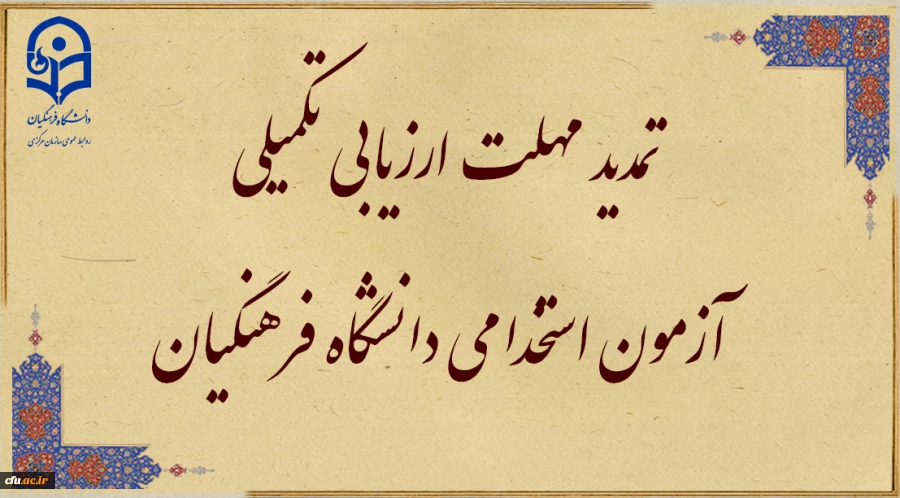 دانشگاه فرهنگیان
روابط عمومی سازمان مرکزی
تمدید مهلت ارزیابی تکمیلی
آزمون استخدامی دانشگاه فرهنگیان
cfu.ac.ir